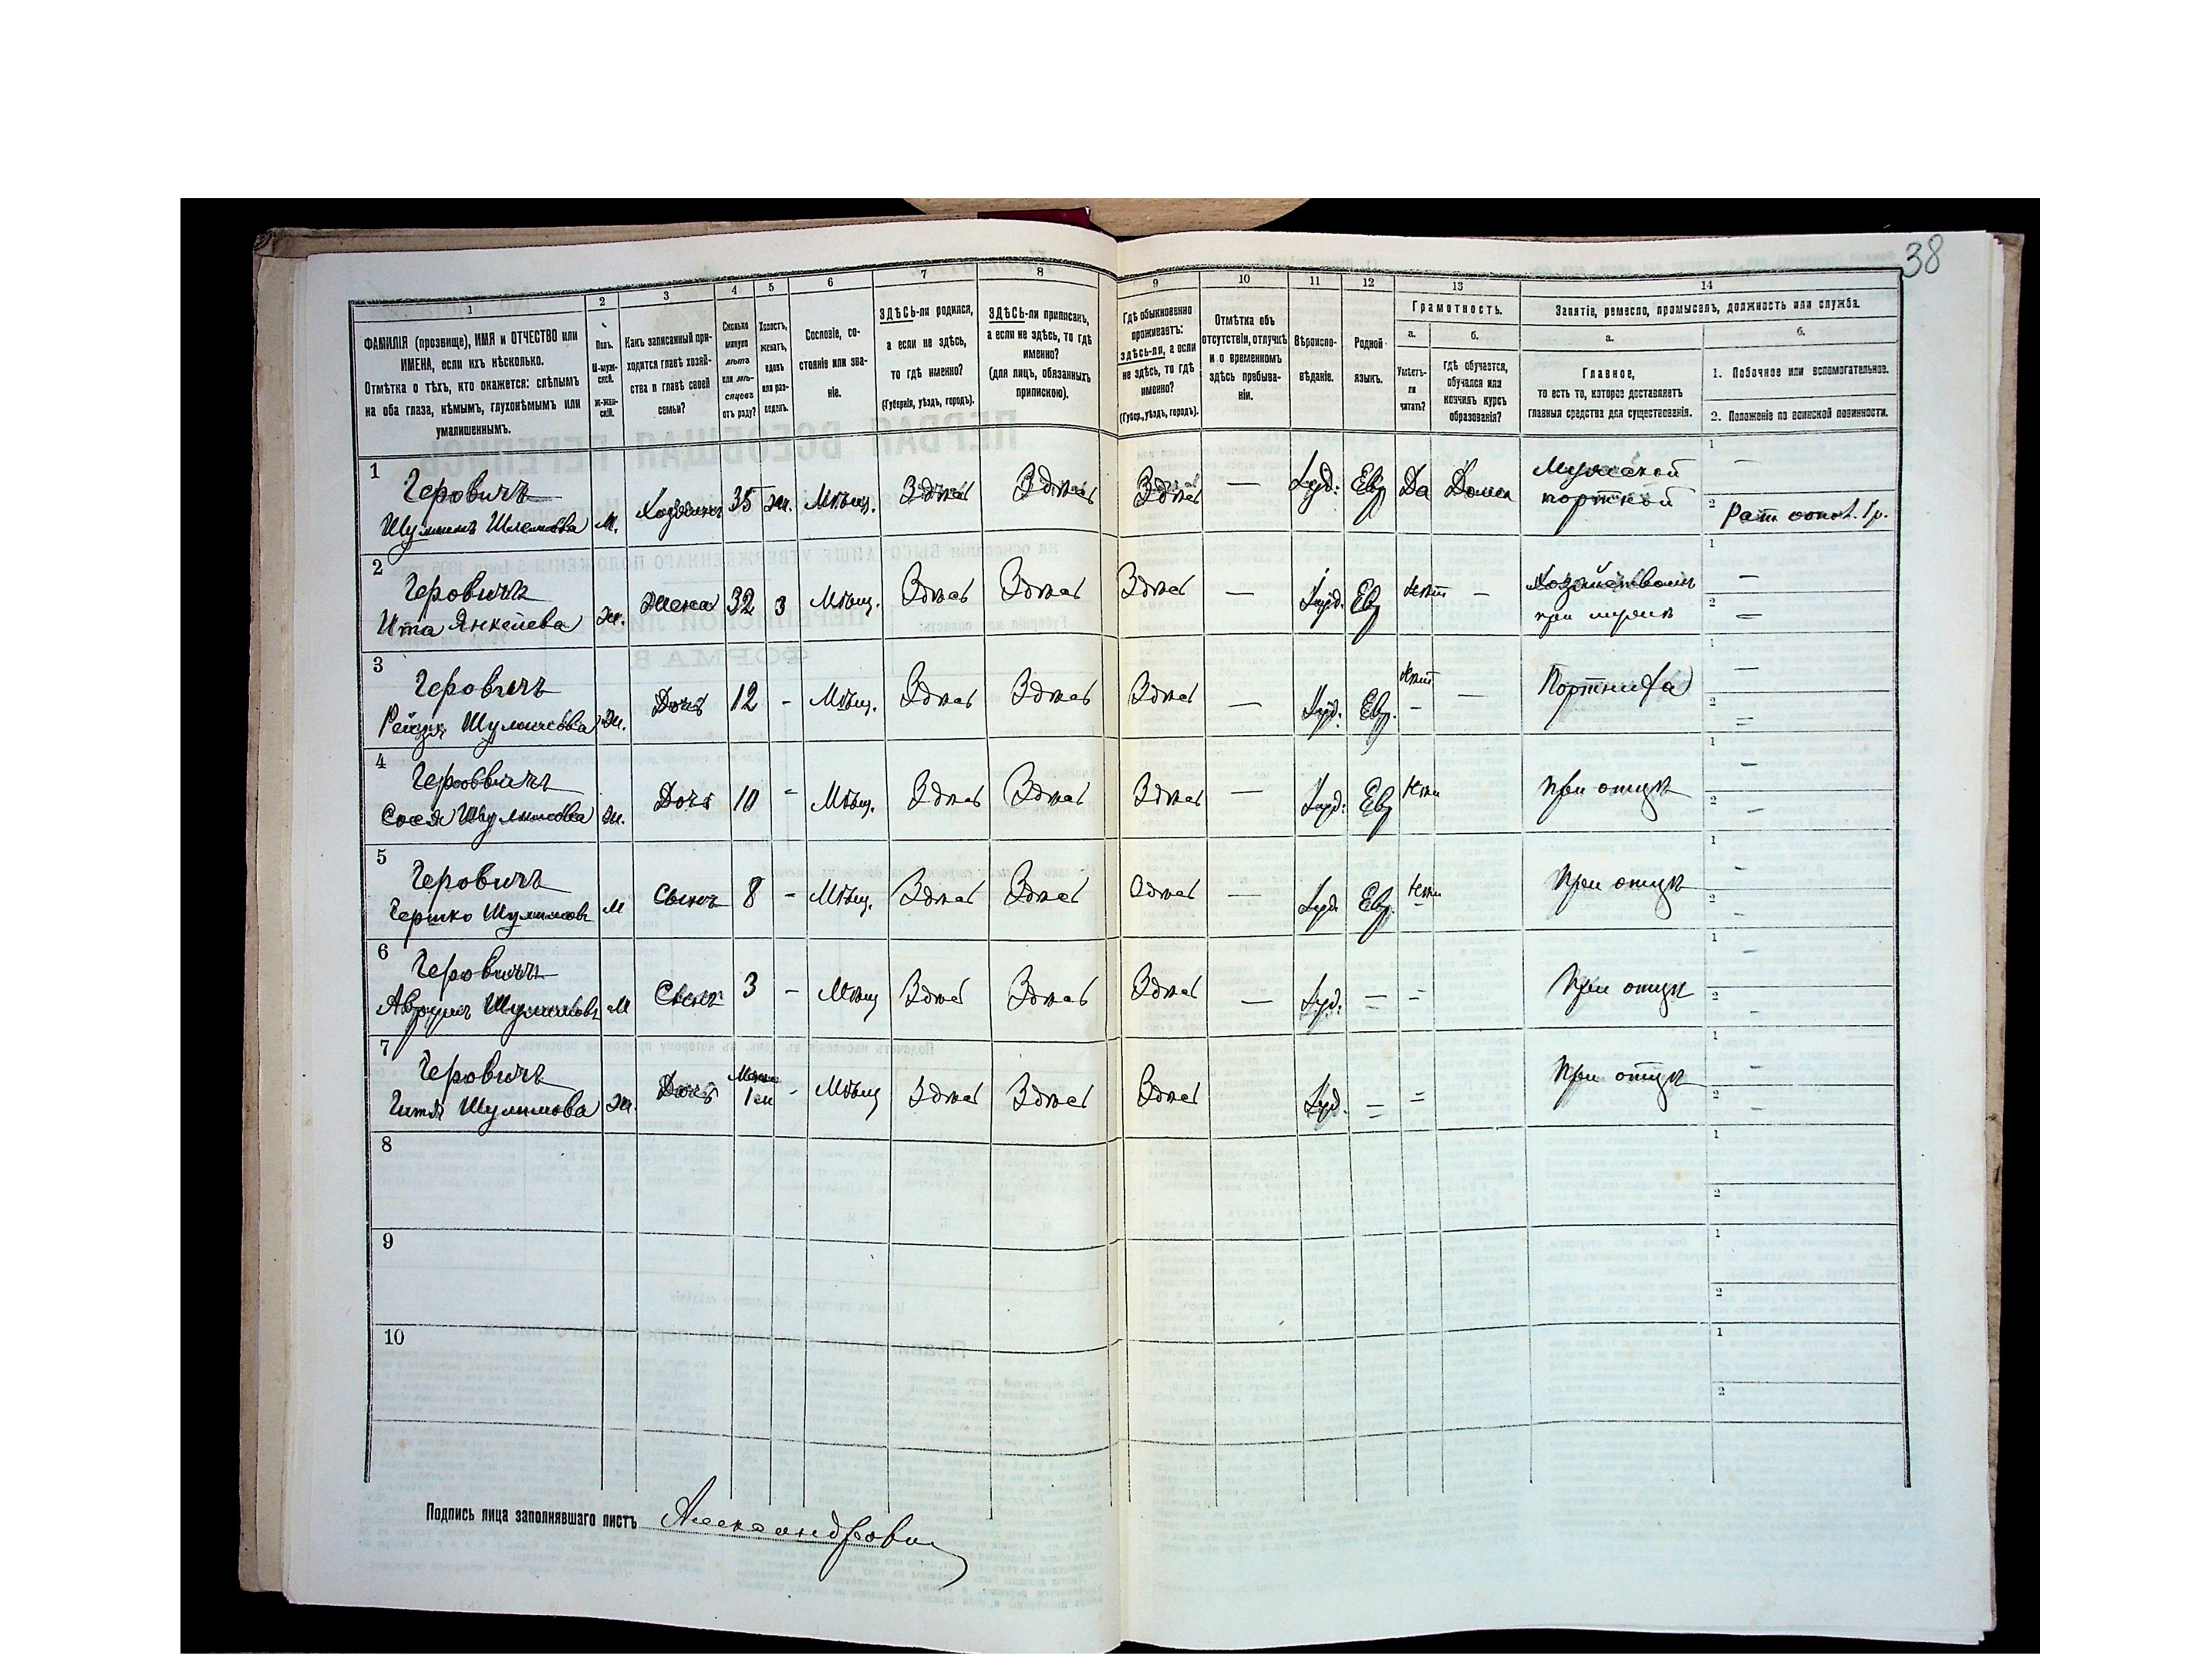 38
1 2 3 4 5 6 7 8 9 10 11 12 13 14
ФАМИЛІЯ (прозвище), ИМЯ и ОТЧЕСТВО или
ИМЕНА, если ихъ нѣсколько.
Отмѣтка о тѣхъ, кто окажется: слѣпымъ
на оба глаза, нѣмымъ, глухонѣмымъ или
умалишеннымъ.
Полъ.
М-муж-
ской.
Ж-жен-
скій.
Какъ записанный при-
ходится главѣ хозяй-
ства и главѣ своей
семьи?
Сколько
минуло
лѣтъ
или мѣ-
сяцевъ
отъ роду?
Холостъ,
женатъ,
вдовъ
или раз-
веденъ.
Сословіе, со-
стояніе или зва-
ніе.
ЗДѢСЬ-ли родился,
а если не здѣсь,
то гдѣ именно?
(Губернія, уѣздъ, городъ).
ЗДѢСЬ-ли приписанъ,
а если не здѣсь, то гдѣ
именно?
(для лицъ, обязанныхъ
припискою).
Гдѣ обыкновенно
проживаетъ:
здѣсь-ли, а если
не здѣсь, то гдѣ
именно?
(Губер., уѣздъ, городъ).
Отмѣтка объ
отсутствіи, отлучкѣ
и о временномъ
здѣсь пребыва-
ніи.
Вѣроиспо-
вѣданіе.
Родной
языкъ.
Грамотность.
а. б.
Умѣетъ-
ли
читать?
Гдѣ обучается,
обучался или
кончилъ курсъ
образованія?
Занятіе, ремесло, промыселъ, должность или служба.
а. б.
Главное,
то есть то, которое доставляетъ
главныя средства для существованія.
1. Побочное или вспомогательное.
2. Положеніе по воинской повинности.
1 Геровичъ
Шулимъ Шлемова М. Хозяинъ 35 ж. Мѣщ. Здѣсь Здѣсь Здѣсь — Іуд. Евр Да Дома Мужской
портной
1 —
2
2 Геровичъ
Ита Янкелева ж. Жена 32 з Мѣщ. Здѣсь Здѣсь Здѣсь — Іуд. Евр Нѣтъ —
при мужѣ
1 —
2 —
3 Геровичъ
Рейзя Шулимова ж. Дочь 12 - Мѣщ. Здѣсь Здѣсь Здѣсь — Іуд. Евр. Нѣтъ — Портниха
1 —
2 —
4 Геровичъ
Сося Шулимова ж. Дочь 10 - Мѣщ. Здѣсь Здѣсь Здѣсь — Іуд. Евр При отцѣ
1 —
2 —
5 Геровичъ
Гершко Шулимовъ М Сынъ 8 - Мѣщ. Здѣсь Здѣсь Здѣсь — Іуд. Евр. При отцѣ
1 —
2 —
6 Геровичъ
Аврумъ Шулимовъ М Сынъ 3 - Мѣщ Здѣсь Здѣсь Здѣсь — Іуд. — - При отцѣ
1 —
2 —
7 Геровичъ
Гитля Шулимова ж. Дочь 1 - Мѣщ Здѣсь Здѣсь Здѣсь Іуд. — - При отцѣ
1 —
2 —
8
1
2
9
1
2
10
1
2
Подпись лица заполнявшаго листъ